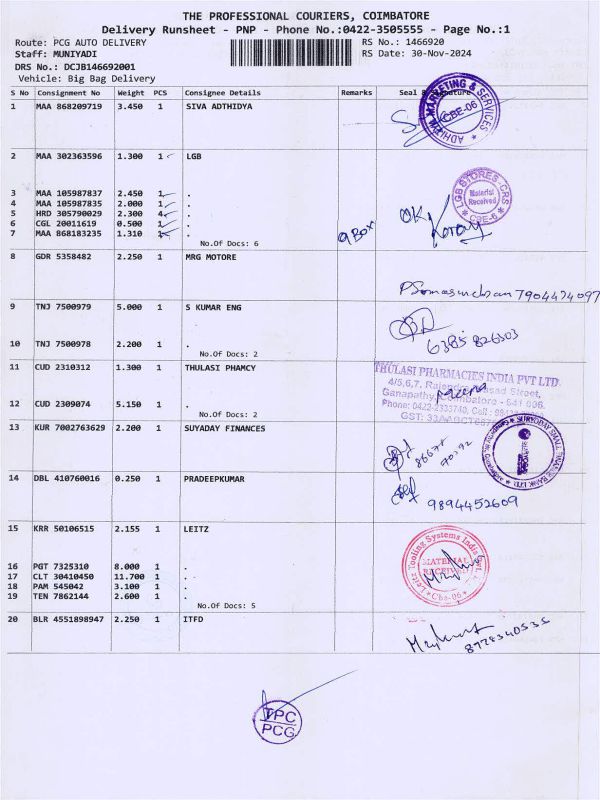 THE PROFESSIONAL COURIERS, COIMBATORE
Delivery Runsheet - PNP - Phone No.:0422-3505555 - Page No.:1
Route: PCG AUTO DELIVERY RS No.: 1466920
Staff: MUNIYADI RS Date: 30-Nov-2024
DRS No.: DCJB146692001
Vehicle: Big Bag Delivery
S No Consignment No Weight PCS Consignee Details Remarks Seal &
1 MAA 868209719 3.450 1 SIVA ADTHIDYA
MARKETING & SERVICES
CBE-06
2 MAA 302363596 1.300 1 LGB
LGB STORES-CRS
Material
Received
CBE-6
3 MAA 105987837 2.450 1 .
4 MAA 105987835 2.000 1 .
5 HRD 305790029 2.300 4 . OK
6 CGL 20011619 0.500 1 .
7 MAA 868183235 1.310 1 . 9 Box
No.Of Docs: 6
8 GDR 5358482 2.250 1 MRG MOTORE
7904474097
9 TNJ 7500979 5.000 1 S KUMAR ENG
6385 826303
10 TNJ 7500978 2.200 1 .
No.Of Docs: 2
11 CUD 2310312 1.300 1 THULASI PHAMCY
THULASI PHARMACIES INDIA PVT LTD.
4/5,6,7, Street,
Ganapathy, Coimbatore - 641 006.
Phone: 0422-2333740, Cell :
12 CUD 2309074 5.150 1 .
No.Of Docs: 2
13 KUR 7002763629 2.200 1 SUYADAY FINANCES
SURYODAY SMALL FINANCE BANK LTD.
14 DBL 410760016 0.250 1 PRADEEPKUMAR
9894452609
15 KRR 50106515 2.155 1 LEITZ
Leitz Tooling Systems India
MATERIAL
RECEIVED
Cbe-06
16 PGT 7325310 8.000 1 .
17 CLT 30410450 11.700 1 .
18 PAM 545042 3.100 1 .
19 TEN 7862144 2.600 1 .
No.Of Docs: 5
20 BLR 4551898947 2.250 1 ITFD
8778340535
TPC
PCG